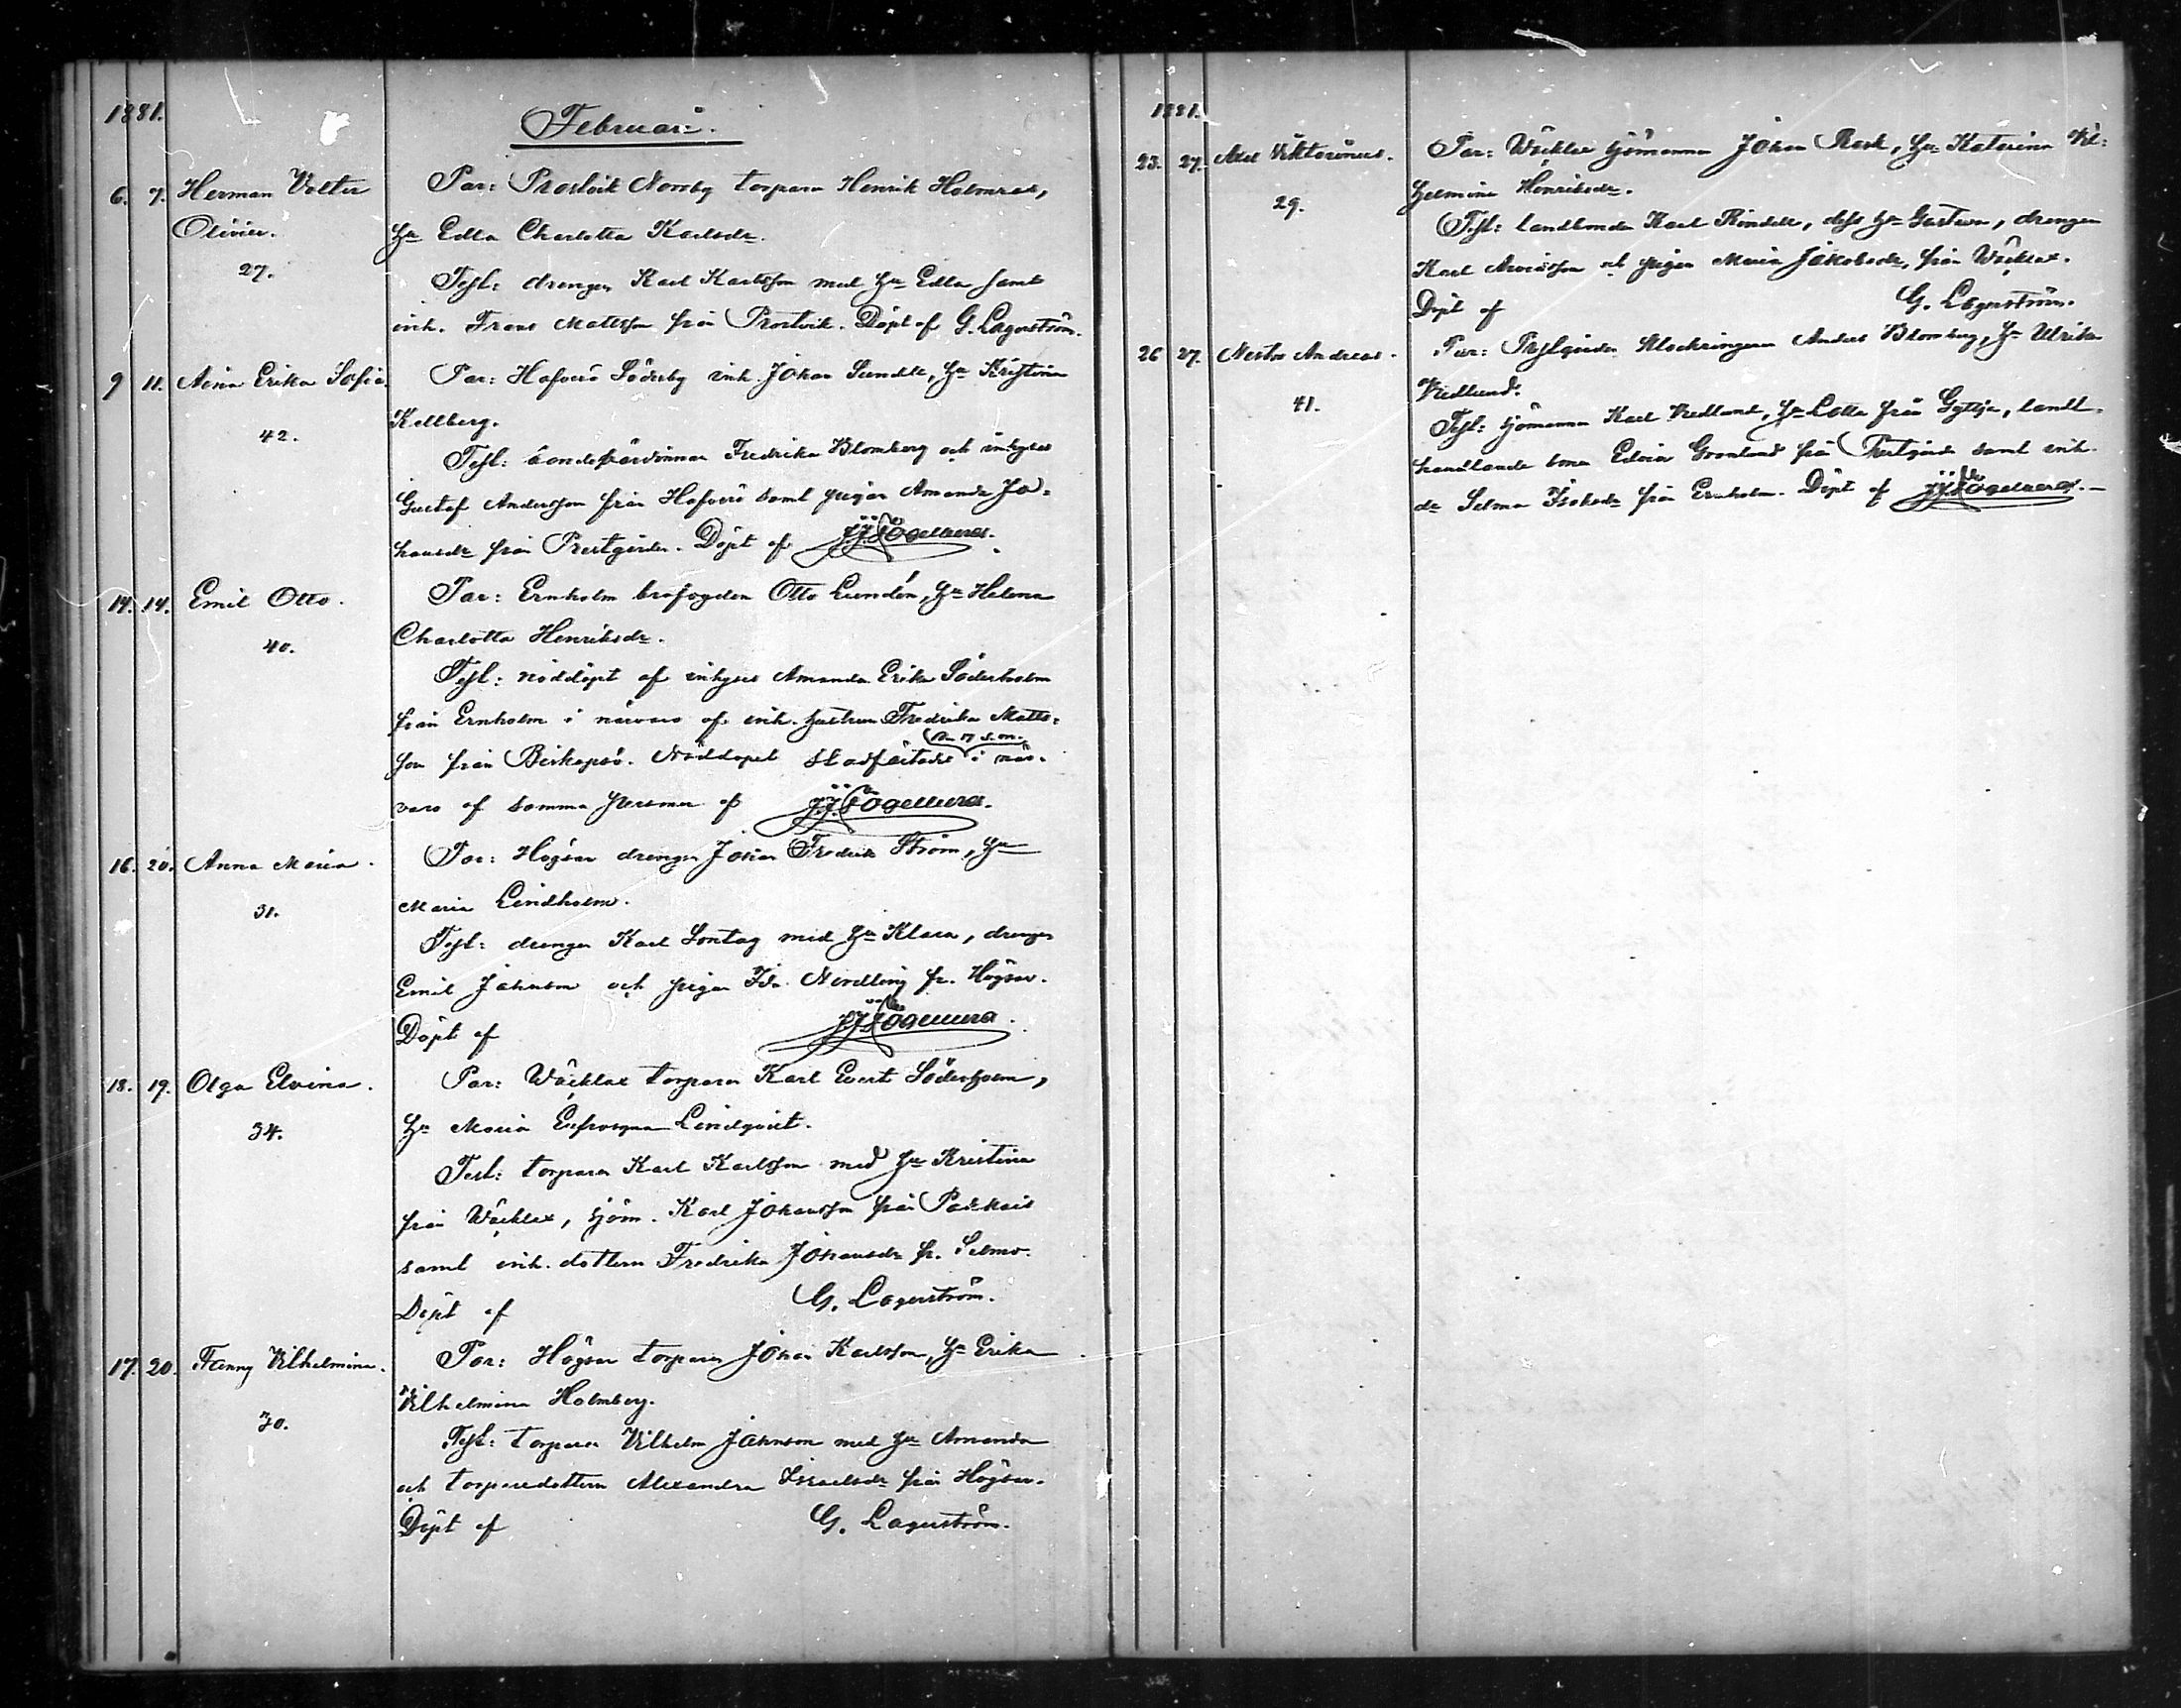 1881.
Februari.
6. 7. Herman Valter Par: Prostvik Norrby torparen Henrik Holmros,
Olivier. hu Edla Charlotta Karlsdr.
27. Test: drengen Karl Karlsson med hu Edla samt
inh. Frans Mattsson från Prostvik. Döpt af G. Lagerström.
9 11. Aina Erika Sofia. Par: Hafverö Söderby inh. Johan Sundell, hu Kristina
Kellberg.
42. Test: Fredrika Blomberg och inhyses
Gustaf Andersson från Hafverö samt pigan Amanda Jo-
hansdr från Prestgården. Döpt af
14. 14. Emil Otto. Par: Ernholm brofogden Otto Lundén, hu Helena
40. Charlotta Henriksdr.
Test: nöddöpt af inhyses Amanda Erika Söderholm
från Ernholm i närvaro af inh. hustrun Fredrika Matts-
son från Biskopsö. Nöddopet stadfästades den 17 s.m. i när-
varo af samma personer af
16. 20. Anna Maria. Par: Högsar drengen Johan Fredrik Ström, hu
31. Maria Lindholm.
Test: drengen Karl Sontag med hu Klara, drengen
Emil Johnson och pigan Ida Nordling fr. Högsar.
Döpt af
18. 19. Olga Elvina. Par: Wäcklax torparen Karl Evert Söderholm,
34. hu Maria Eufrosyna Lindqvist.
Test: torparen Karl Karlsson med hu Kristina
från Wäcklax, sjöm. Karl Johansson från
samt inh. dottern Fredrika Johansdr fr.
Döpt af G. Lagerström.
17. 20. Fanny Vilhelmina. Par: Högsar torparen Johan Karlsson, hu Erika
30. Vilhelmina Holmberg.
Test: torparen Vilhelm Johnson med hu Amanda
och torparedottern Alexandra Israelsdr från Högsar.
Döpt af G. Lagerström.
1881.
23. 27. Axel Viktorinus. Par: Wäcklax sjömannen Johan Rask, hu Katarina Vil-
29. helmina Henriksdr.
Test: landbonden Karl Rindell, dess hu Gustava, drengen
Karl Arvidsson och pigan Maria Jakobsdr, från Wäcklax.
Döpt af G. Lagerström.
26 27. Nestor Andreas. Par: Prestgården klockringaren Anders Blomberg, hu Ulrika
41. Vedlund.
Test: sjömannen Karl Vedlund, hu Lotta från Gyttja, landt-
handlande sonen Edvin Grönlund från Prestgård samt inh.
dr Selma Isaksdr från Ernholm. Döpt af